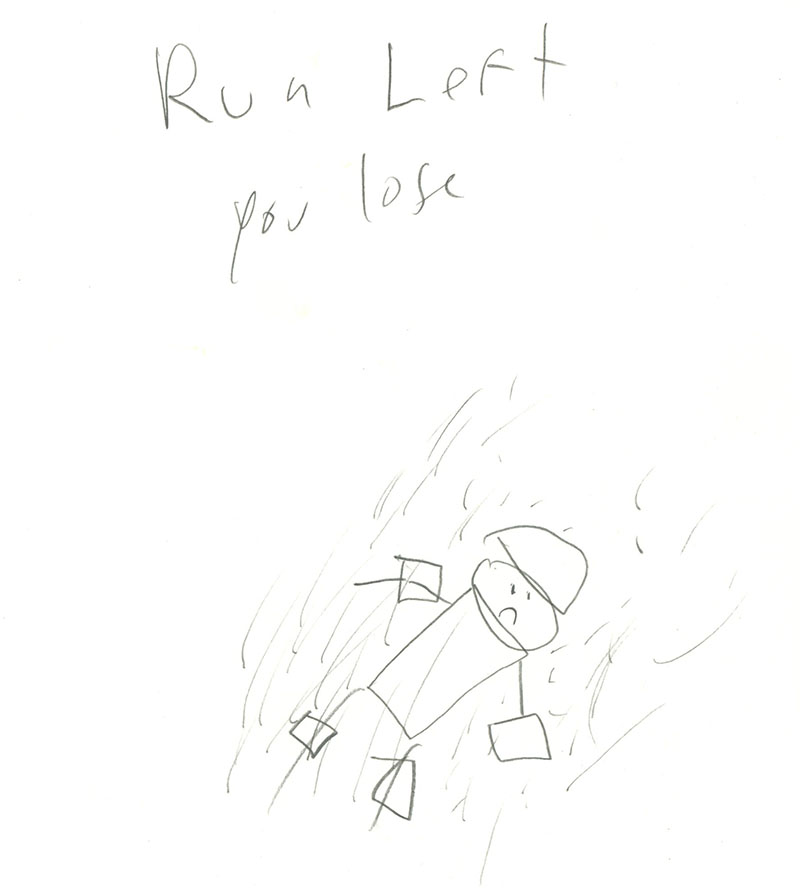 Run Left
you lose